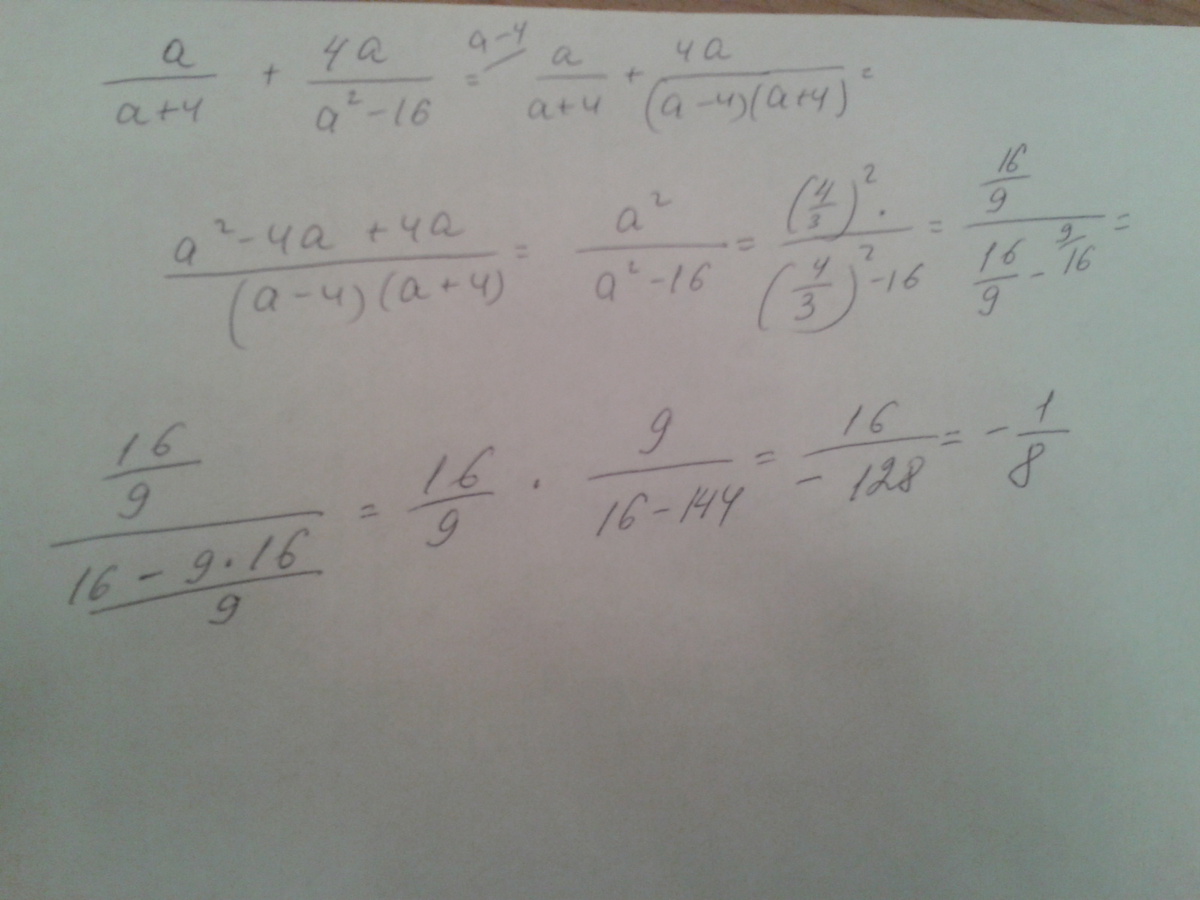 a/(a+4) + 4a/(a²-16) = ᵃ⁻⁴⁄ a/(a+4) + 4a/((a-4)(a+4)) =
(a²-4a+4a)/((a-4)(a+4)) = a²/(a²-16) = (4/3)²·/((4/3)²-16) = (16/9)/(16/9 - ⁹⁄16) =
(16/9)/((16-9·16)/9) = 16/9 · 9/(16-144) = 16/(-128) = -1/8